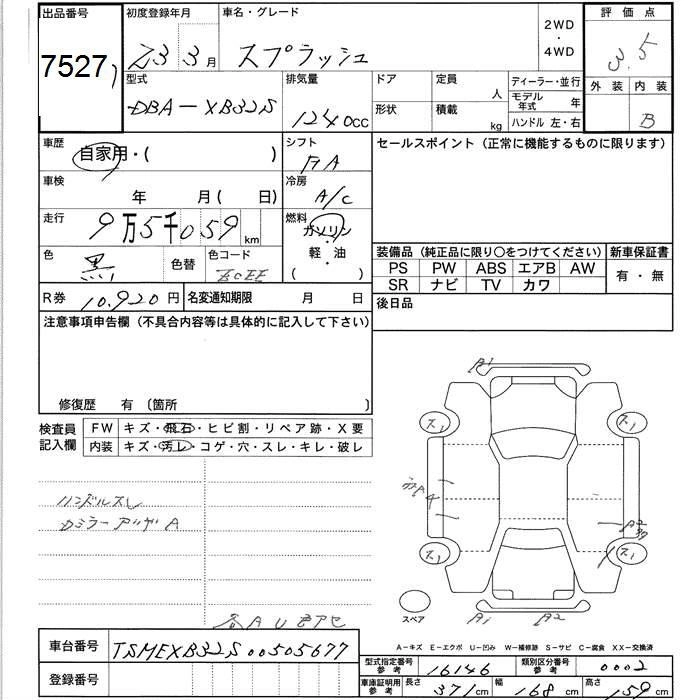 出品番号
7527
初度登録年月
23 3月
車名・グレード
スプラッシュ
2WD
・
4WD
評価点
3.5
外装 内装
B
型式
DBA-XB32S
排気量
1240cc
ドア
形状
定員
人
積載
kg
ディーラー・並行
モデル年式 年
ハンドル 左・右
車歴
自家用・( )
シフト
FA
セールスポイント(正常に機能するものに限ります)
車検
年 月( 日)
冷房
A/C
走行
9万5千059km
燃料
ガソリン
・
軽油
( )
色
黒
色替
色コード
装備品(純正品に限り○をつけてください)
新車保証書
PS PW ABS エアB AW
有・無
SR ナビ TV カワ
R券 10,920円
名変通知期限 月 日
後日品
注意事項申告欄(不具合内容等は具体的に記入して下さい)
修復歴 有 〔箇所 〕
検査員
記入欄
FW キズ・飛石・ヒビ割・リペア跡・X要
内装 キズ・汚レ・コゲ・穴・スレ・キレ・破レ
ハンドルスレ
A1
A1
A2
スペア
A-キズ E-エクボ U-凹み W-補修跡 S-サビ C-腐食 XX-交換済
車台番号
TSMEXB32S00505677
登録番号
型式指定番号
参考
16146
類別区分番号
参考
0002
車庫証明用
参考
長さ 371cm
幅 168cm
高さ 159cm